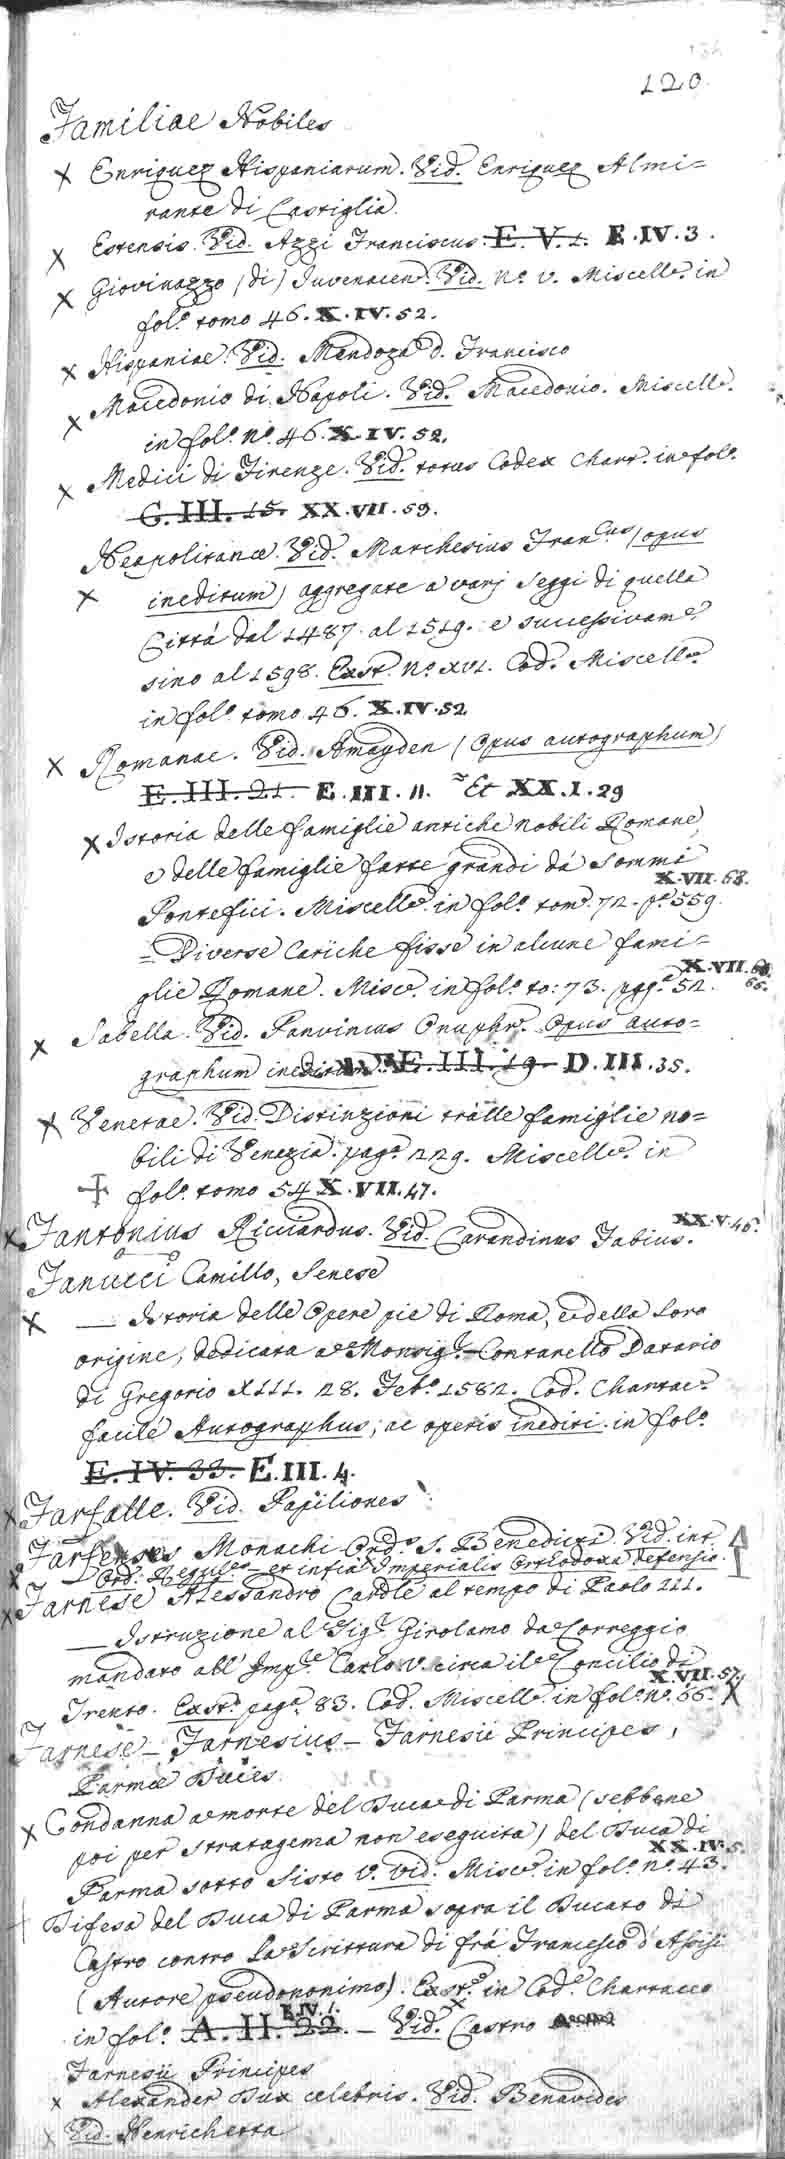 120.
Familiae Nobiles
x Enriquez Hispaniarum. Vid. Enriquez Almi=
rante di Castiglia.
x Estensis. Vid. Azzi Franciscus. E. V. 1. E.IV.3.
x Giovinazzo (di) Juvenacen. Vid. N.º V. Miscell. in
fol.º tomo 46. X.IV.52.
x Hispaniae. Vid. Mendoza d. Francisco
x Macedonio di Napoli. Vid. Macedonio. Miscell.
in fol.º n.º 46. X.IV.52.
x Medici di Firenze. Vid. totus Codex Chart. in fol.º
C. III. 15. XX.VII.59.
Neapolitanæ. Vid. Marchesius Fran.cus (opus
x ineditum) aggregate a varj Seggi di quella
Città dal 1487. al 1519. e successivam.e
sino al 1598. Exst. N.º XVI. Cod. Miscell.
in fol.º tomo 46. X.IV.52
x Romanae. Vid. Amayden (Opus autographum)
E. III. 21. E.III.11. Et XX.I.29
x Istoria delle famiglie antiche nobili Romane,
e delle famiglie fatte grandi dà Sommi
X.VII.68.
Pontefici. Miscell. in fol.º tom. 72. p.ª 559.
= Diverse Cariche fisse in alcune fami=
X.VII.
66.
glie Romane. Misc. in fol.º to: 73. pag.ª 52.
x Sabella. Vid. Panvinius Onuphr. Opus auto=
graphum ineditum E. III. 19. D.III.35.
x Venetae. Vid. Distinzioni trà lle famiglie no=
bili di Venezia. pag.ª 229. Miscell. in
fol.º tomo 54 X.VII.47.
XX.V.46.
x Fantonius Ricciardus. Vid. Carandinus Fabius.
Fanucci Camillo, Senese
x — Istoria delle Opere pie di Roma, e della loro
origine, dedicata a Monsig.r Contarello Datario
di Gregorio XIII. 28. Feb.º 1582. Cod. Chartac.
facilè Autographus, ac operis inediti. in fol.º
E. IV. 33. E.III.4.
x Farfalle. Vid. Papiliones
Farfenses Monachi Ord.s S. Benedicti. Vid. int.
x — Ord. Regul. — et infra Imperialis Orthodoxa defensio.
x Farnese Alessandro Card.le al tempo di Paolo III.
— Istruzione al Sig.r Girolamo da Correggio
mandato all' Imp.e Carlo V. circa il Concilio di
X.VII.57.
Trento. Exst. pag.ª 83. Cod. Miscell. in fol. n.º 66. X
Farnese — Farnesius — Farnesii Principes,
Parmæ Duces.
x Condanna a morte del Duca di Parma (sebbene
poi per stratagema non eseguita) del Duca di
XX.IV.5.
Parma sotto Sisto V. Vid. Misc. in fol.º n.º 43.
Difesa del Duca di Parma sopra il Ducato di
Castro contro la Scrittura di frà Francesco d'Assisi
(Autore pseudononimo). Exst. in Cod.e Chartaceo
E.IV.1.
in fol.º A. II. 22. — Vid. Castro
Farnesii Principes
x Alexander Dux celebris. Vid. Benavides
x Vid. Henrichetta